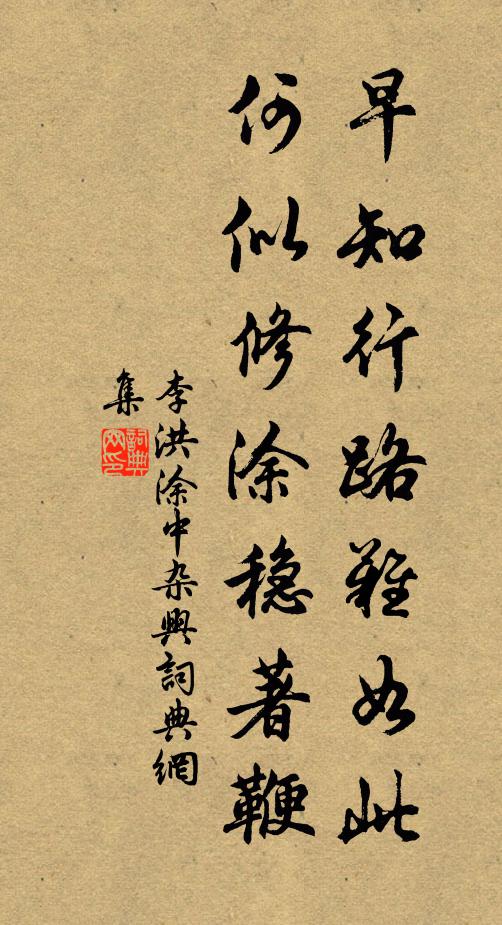 早知行路難如此
何似修除穩著鞭
李洪涂中杂興詞典網
集
詞典網印